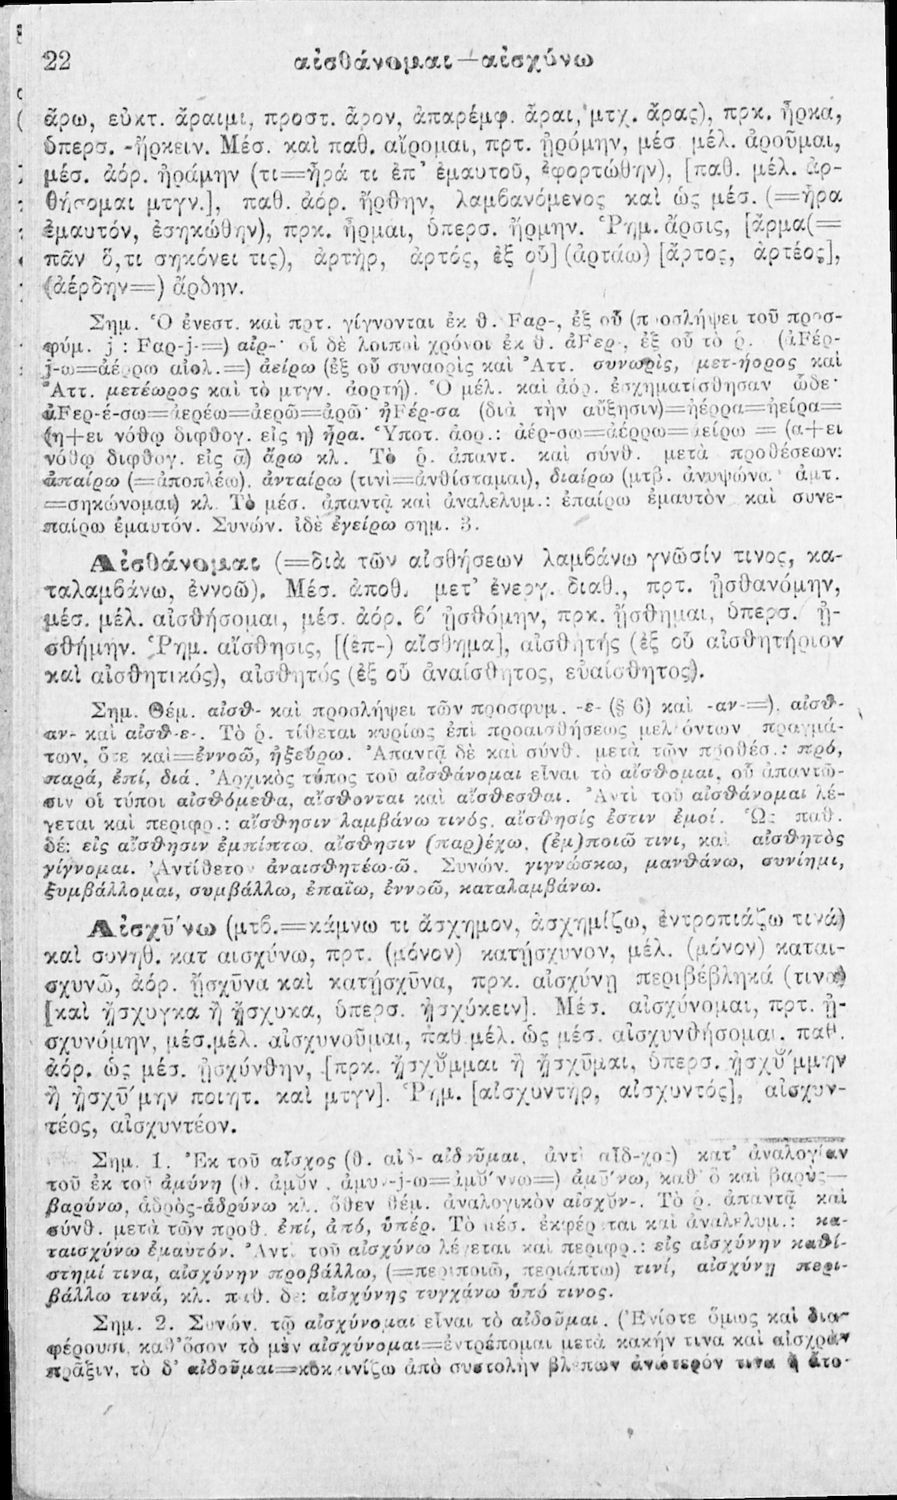 22 αἰσθάνομαι—αἰσχύνω
ἄρω, εὐκτ. ἄραιμι, προστ. ἆρον, ἀπαρέμφ. ἆραι, μτχ. ἄρας), πρκ. ἦρκα,
ὑπερσ. -ἤρκειν. Μέσ. καὶ παθ. αἴρομαι, πρτ. ᾐρόμην, μέσ μέλ. ἀροῦμαι,
μέσ. ἀόρ. ἠράμην (τι=ἦρά τι ἐπ’ ἐμαυτοῦ, ἐφορτώθην), [παθ. μέλ. ἀρ-
θήσομαι μτγν.], παθ. ἀόρ. ἤρθην, λαμβανόμενος καὶ ὡς μέσ. (=ἦρα
ἐμαυτόν, ἐσηκώθην), πρκ. ἦρμαι, ὑπερσ. ἤρμην. Ῥημ. ἄρσις, [ἄρμα(=
πᾶν ὅ,τι σηκόνει τις), ἀρτήρ, ἀρτός, ἐξ οὗ] (ἀρτάω) [ἄρτος, ἀρτέος],
(ἀέρδην=) ἄρδην.
Σημ. Ὁ ἐνεστ. καὶ πρτ. γίγνονται ἐκ θ. Fαρ-, ἐξ οὗ (προσλήψει τοῦ προσ-
φύμ. j : Fαρ-j-=) αἰρ-· οἱ δὲ λοιποὶ χρόνοι ἐκ θ. ἀFερ-, ἐξ οὗ τὸ ῥ. (ἀFέρ-
j-ω=ἀέρρω αἰολ.=) ἀείρω (ἐξ οὗ συναορὶς καὶ Ἀττ. συνωρὶς, μετ-ήορος καὶ
Ἀττ. μετέωρος καὶ τὸ μτγν. ἀορτή). Ὁ μέλ. καὶ ἀόρ. ἐσχηματίσθησαν ὧδε·
ἀFερ-έ-σω=ἀερέω=ἀερῶ=ἀρῶ· ἠFέρ-σα (διὰ τὴν αὔξησιν)=ἠέρρα=ἠείρα=
(η+ει νόθῳ διφθογ. εἰς η) ἦρα. Ὑποτ. ἀορ.: ἀέρ-σω=ἀέρρω=ἀείρω = (α+ει
νόθῳ διφθογ. εἰς ᾱ) ἄρω κλ. Τὸ ῥ. ἀπαντ. καὶ σύνθ. μετὰ προθέσεων:
ἀπαίρω (=ἀποπλέω), ἀνταίρω (τινὶ=ἀνθίσταμαι), διαίρω (μτβ. ἀνυψώνω· ἀμτ.
=σηκώνομαι) κλ. Τὸ μέσ. ἀπαντᾷ καὶ ἀναλελυμ.: ἐπαίρω ἐμαυτὸν καὶ συνε-
παίρω ἐμαυτόν. Συνών. ἰδὲ ἐγείρω σημ. β.
Αἰσθάνομαι (=διὰ τῶν αἰσθήσεων λαμβάνω γνῶσίν τινος, κα-
ταλαμβάνω, ἐννοῶ). Μέσ. ἀποθ. μετ’ ἐνεργ. διαθ., πρτ. ᾐσθανόμην,
μέσ. μέλ. αἰσθήσομαι, μέσ. ἀόρ. β′ ᾐσθόμην, πρκ. ᾔσθημαι, ὑπερσ. ᾐ-
σθήμην. Ῥημ. αἴσθησις, [(ἐπ-) αἴσθημα], αἰσθητής (ἐξ οὗ αἰσθητήριον
καὶ αἰσθητικός), αἰσθητός (ἐξ οὗ ἀναίσθητος, εὐαίσθητος).
Σημ. Θέμ. αἰσθ- καὶ προσλήψει τῶν προσφυμ. -ε- (§ 6) καὶ -αν-=). αἰσθ-
αν- καὶ αἰσθ-ε-. Τὸ ῥ. τίθεται κυρίως ἐπὶ προαισθήσεως μελλόντων πραγμά-
των, ὅτε καὶ=ἐννοῶ, ἠξεύρω. Ἀπαντᾷ δὲ καὶ σύνθ. μετὰ τῶν προθέσ.: πρό,
παρά, ἐπί, διά. Ἀρχικὸς τύπος τοῦ αἰσθάνομαι εἶναι τὸ αἴσθομαι, οὗ ἀπαντῶ-
σιν οἱ τύποι αἰσθόμεθα, αἴσθονται καὶ αἴσθεσθαι. Ἀντὶ τοῦ αἰσθάνομαι λέ-
γεται καὶ περιφρ.: αἴσθησιν λαμβάνω τινός, αἴσθησίς ἐστιν ἐμοί. Ὡς παθ.
δέ: εἰς αἴσθησιν ἐμπίπτω. αἴσθησιν (παρ)έχω, (ἐμ)ποιῶ τινι, καὶ αἰσθητὸς
γίγνομαι. Ἀντίθετον ἀναισθητέω-ῶ. Συνών. γιγνώσκω, μανθάνω, συνίημι,
ξυμβάλλομαι, συμβάλλω, ἐπαΐω, ἐννοῶ, καταλαμβάνω.
Αἰσχῡ́νω (μτβ.=κάμνω τι ἄσχημον, ἀσχημίζω, ἐντροπιάζω τινά)
καὶ συνηθ. κατ αισχύνω, πρτ. (μόνον) κατῄσχυνον, μέλ. (μόνον) καται-
σχυνῶ, ἀόρ. ᾔσχῡνα καὶ κατῄσχῡνα, πρκ. αἰσχύνῃ περιβέβληκά (τινα)
[καὶ ᾔσχυγκα ἢ ᾔσχυκα, ὑπερσ. ᾐσχύκειν]. Μέσ. αἰσχύνομαι, πρτ. ᾐ-
σχυνόμην, μέσ.μέλ. αἰσχυνοῦμαι, παθ.μέλ. ὡς μέσ. αἰσχυνθήσομαι, παθ.
ἀόρ. ὡς μέσ. ᾐσχύνθην, [πρκ. ᾔσχῡμμαι ἢ ᾔσχῡμαι, ὑπερσ. ᾐσχῡ́μμην
ἢ ᾐσχῡ́μην ποιητ. καὶ μτγν]. Ῥημ. [αἰσχυντήρ, αἰσχυντός], αἰσχυν-
τέος, αἰσχυντέον.
Σημ. 1. Ἐκ τοῦ αἶσχος (θ. αἰδ- αἰδοῦμαι, ἀντὶ αἶδ-χος) κατ’ ἀναλογίαν
τοῦ ἐκ τοῦ ἀμύνη (θ. ἀμῡν-, ἀμυν-j-ω=ἀμῡ́ννω=) ἀμῡ́νω, καθ’ ὃ καὶ βαρὺς—
βαρύνω, ἁδρὸς-ἁδρύνω κλ. ὅθεν θέμ. ἀναλογικὸν αἰσχῡν-. Τὸ ῥ. ἀπαντᾷ καὶ
σύνθ. μετὰ τῶν προθ. ἐπί, ἀπό, ὑπέρ. Τὸ μέσ. ἐκφέρεται καὶ ἀναλελυμ.: κα-
ταισχύνω ἐμαυτόν. Ἀντὶ τοῦ αἰσχύνω λέγεται καὶ περιφρ.: εἰς αἰσχύνην καθί-
στημί τινα, αἰσχύνην προβάλλω, (=περιποιῶ, περιάπτω) τινί, αἰσχύνῃ περι-
βάλλω τινά, κλ. παθ. δέ: αἰσχύνης τυγχάνω ὑπό τινος.
Σημ. 2. Συνών. τῷ αἰσχύνομαι εἶναι τὸ αἰδοῦμαι. (Ἐνίοτε ὅμως καὶ δια-
φέρουσι, καθ’ὅσον τὸ μὲν αἰσχύνομαι=ἐντρέπομαι μετὰ κακήν τινα καὶ αἰσχρὰν
πρᾶξιν, τὸ δ’ αἰδοῦμαι=κοκκινίζω ἀπὸ συστολὴν βλέπων ἀνώτερόν τινα ἢ ἄτο-